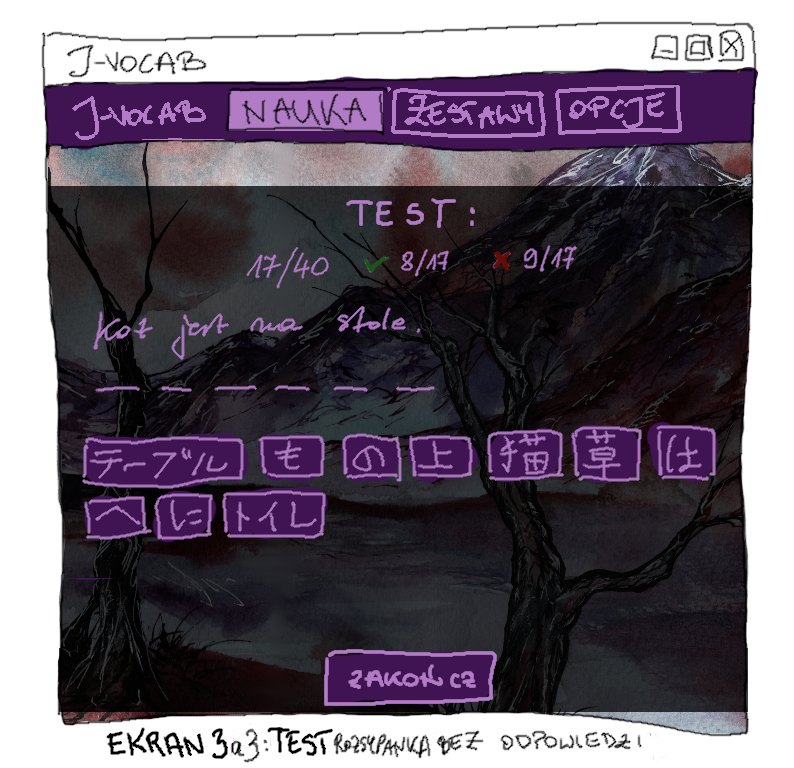 J-VOCAB
J-VOCAB NAUKA ZESTAWY OPCJE
TEST:
17/40 ✓ 8/17 ✗ 9/17
Kot jest na stole.
テーブル も の 上 猫 草 は
へ に トイレ
ZAKOŃCZ
EKRAN 3a3: TEST ROZSYPANKA BEZ ODPOWIEDZI